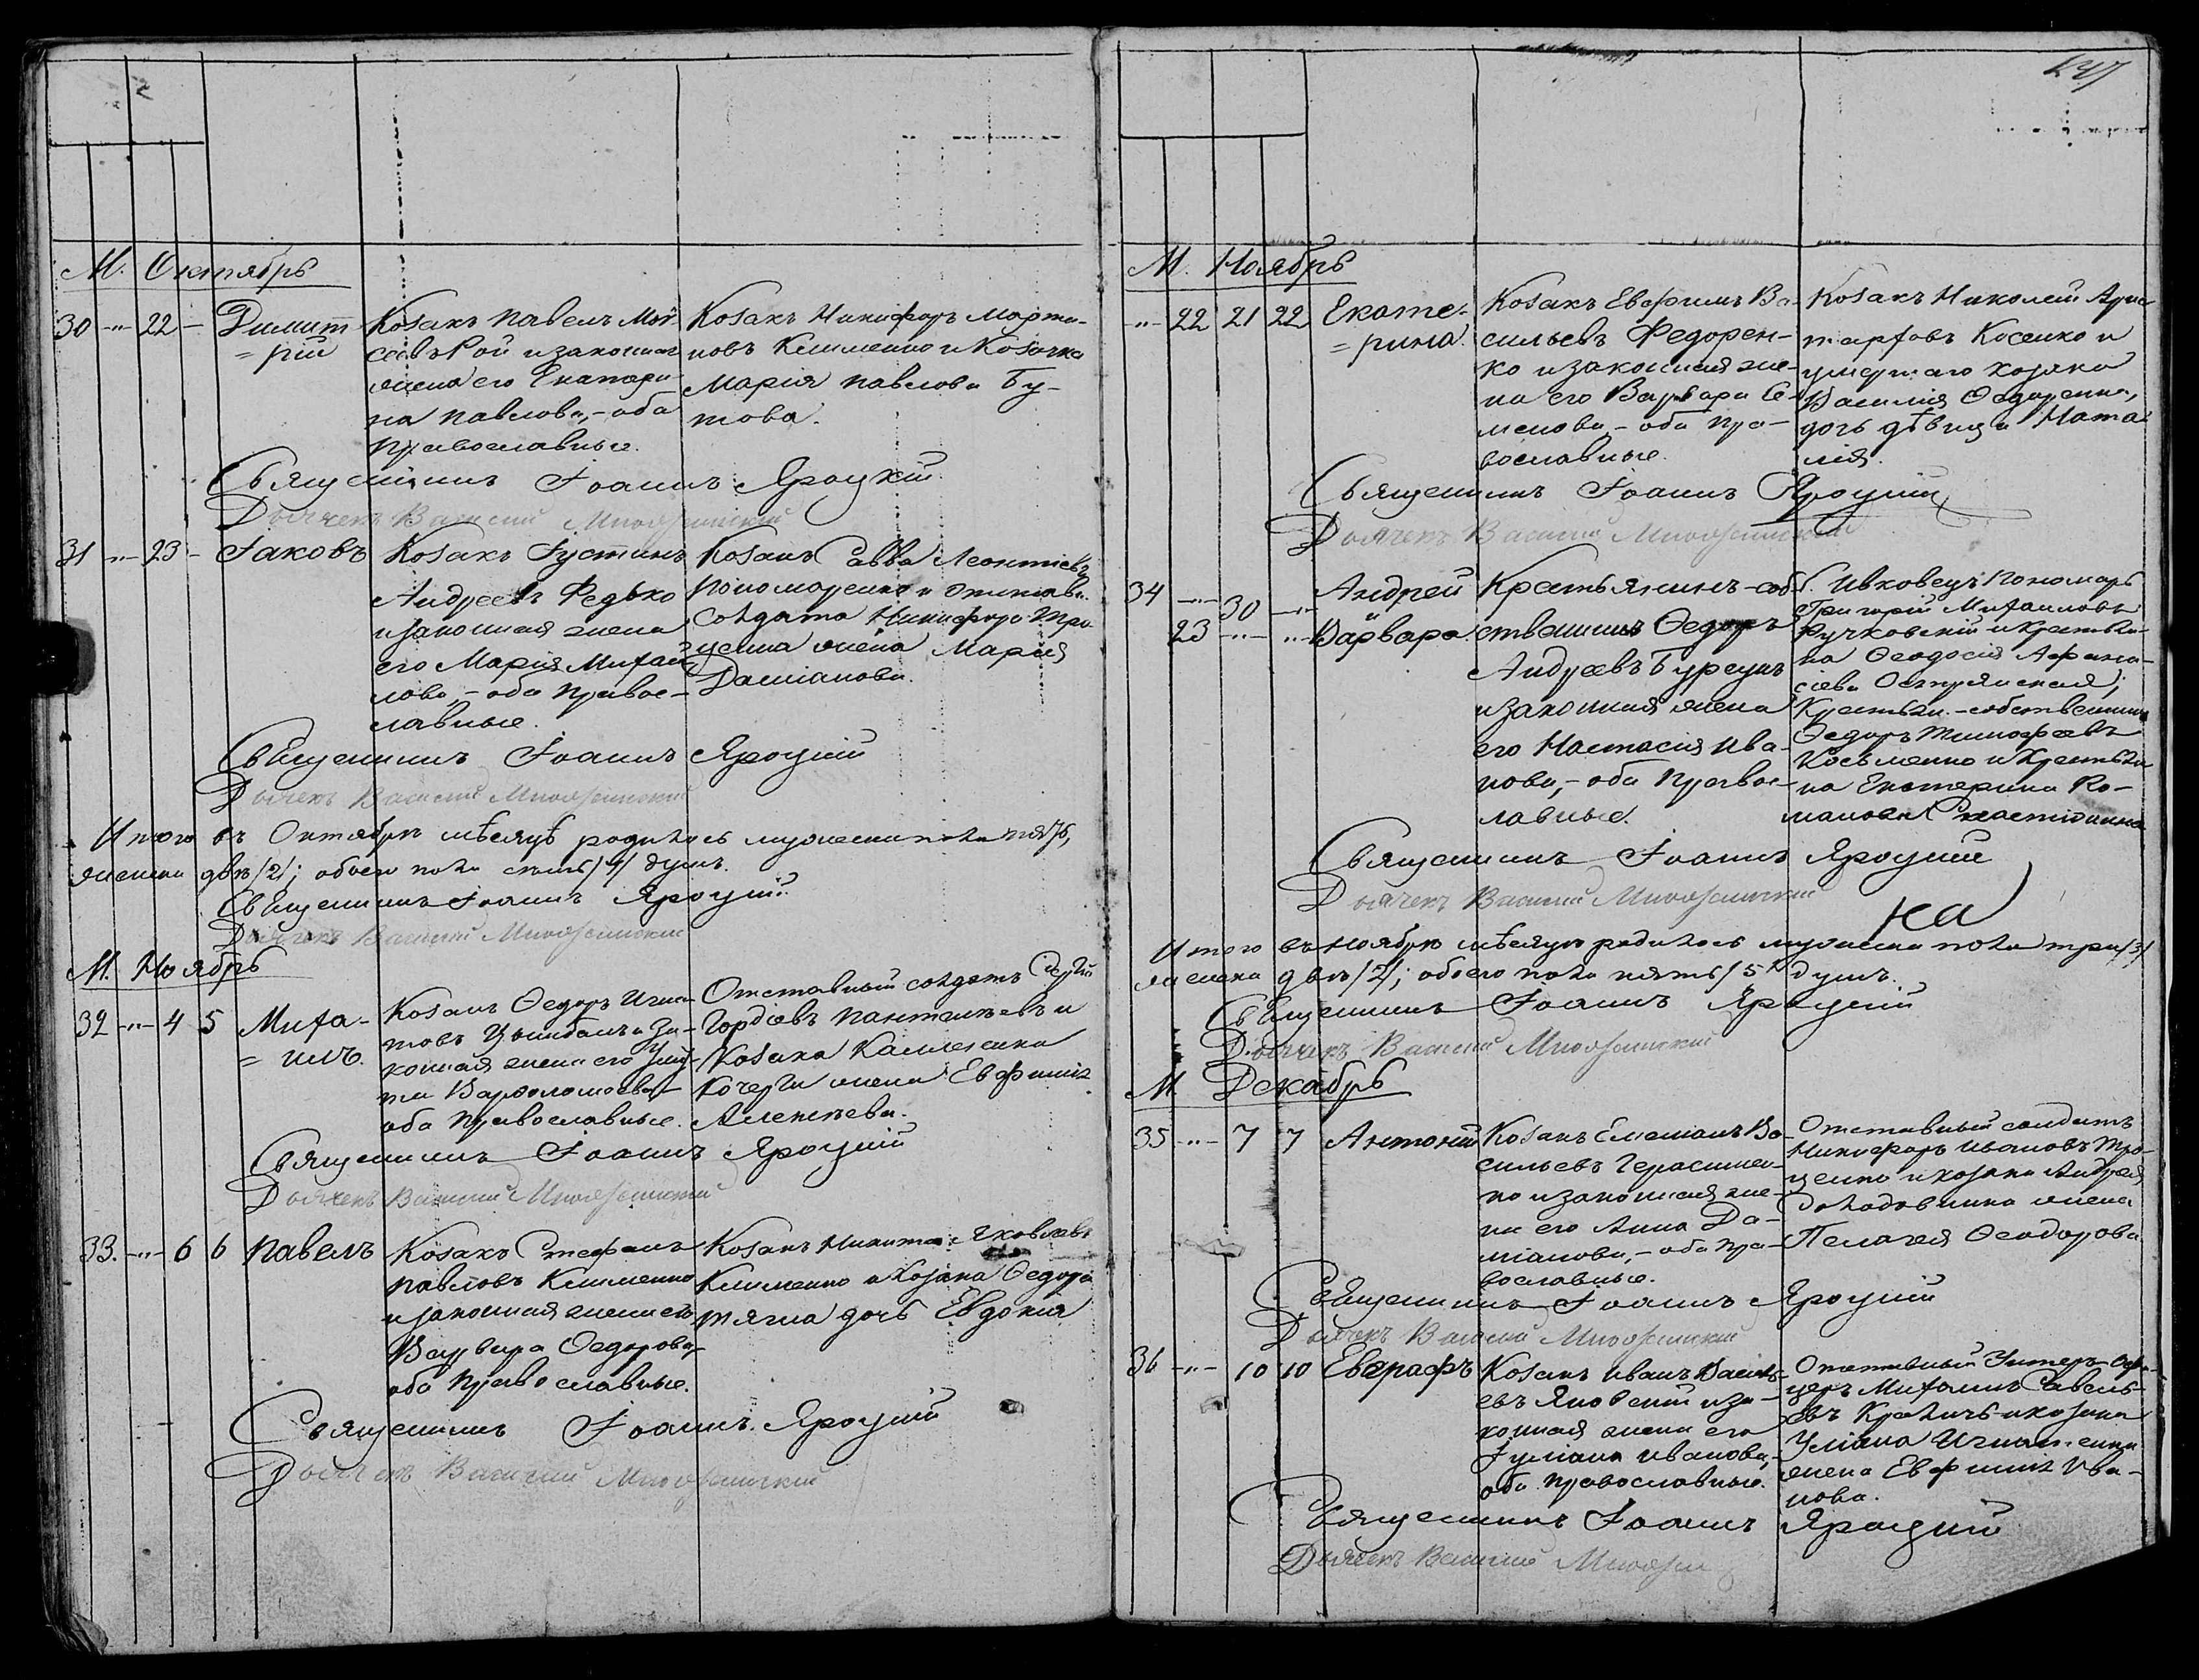 М. Октябрь
30 -"- 22 - Димит
= рій
Козакъ Павелъ Мой-
сеевъ Рой и законная
жена его Екатери-
на Павлова, - оба
православные.
Козакъ Никифоръ Марти-
новъ Клименко и козачка
Марія Павлова Бу-
това.
Священникъ Іоаннъ Яроцкій
Дьячекъ Василій
31 -"- 23 - Іаковъ
Козакъ Іустинъ
Андреевъ Федько
и законная жена
его Марія Михай-
лова, - оба правос-
лавные.
Козакъ Савва Леонтіевъ
Пономаренко и отставн.
солдата Никифора Про
ценка жена Марія
Даміанова.
Священникъ Іоаннъ Яроцкій
Дьячекъ Василій
Итого въ Октябрѣ мѣсяцѣ родилось мужеска пола пять,
женска двѣ /2/; обоего пола семь /7/ душъ.
Священникъ Іоаннъ Яроцкій
Дьячекъ Василій
М. Ноябрь
32 -"- 4 5 Миха-
= илъ.
Козакъ Ѳеодоръ Игна-
товъ Цымбалъ и За-
конная жена его
Варѳоломеева -
оба православные.
Отставный солдатъ Сергій
Гордіевъ Пантелѣевъ и
Козака
Кочерги жена Евфимія
Алексѣева.
Священникъ Іоаннъ Яроцкій
Дьячекъ Василій
33. -"- 6 6 Павелъ
Козакъ Стефанъ
Павловъ Клименко
и законная жена его
Варвара Ѳедорова,
оба православные.
Козакъ Никита Яковлевъ
Клименко и козака Ѳедора
Тягна дочь Евдокія
Священникъ Іоаннъ Яроцкій
Дьячекъ Василій
247
М. Ноябрь
-"- 22 21 22 Екате-
= рина.
Козакъ Евфимъ Ва-
сильевъ Федорен-
ко и законная же-
на его Варвара Се-
менова, - оба пра-
вославные.
Козакъ Николай Арис
тарховъ Косенко и
умершаго козака
Василія Ѳедоренка,
дочь дѣвица Ната-
лія.
Священникъ Іоаннъ Яроцкій
Дьячекъ Василій
34 -"- 30 -"- Андрей
и
23 -"- -"- Варвара.
Крестьянинъ-соб
ственникъ Ѳедоръ
Андреевъ Бурсукъ
и законная жена
его Настасія Ива-
нова, - оба правос-
лавные.
Пономарь
Григорій Михайловъ
Ручковскій и крестьян-
ка Ѳеодосія Афана-
сіева
Крестьян.-собственникъ
Ѳедоръ Тимофеевъ
Косьменко и крестьян
ка Екатерина Ро-
манова
Священникъ Іоаннъ Яроцкій
Дьячекъ Василій
ка
Итого въ Ноябрѣ мѣсяцѣ родилось мужеска пола три /3/
женска двѣ /2/; обоего пола пять /5/ душъ.
Священникъ Іоаннъ Яроцкій
Дьячекъ Василій
М. Декабрь
35 -"- 7 7 Антоній
Козакъ Емеліанъ Ва-
сильевъ Герасимен-
ко и законная же-
на его Анна Да-
міанова, - оба пра-
вославные.
Отставный солдатъ
Никифоръ Ивановъ Про-
ценко и козака Андрея
Солодовника жена
Пелагея Ѳеодорова
Священникъ Іоаннъ Яроцкій
Дьячекъ Василій
36 -"- 10 10 Евграфъ
Козакъ Иванъ Василь-
евъ Яновскій и за-
конная жена его
Іуліана Иванова,
оба православные.
Отставный Унтеръ-Офи-
церъ Михаилъ Савель-
евъ и козака
Уліана Игнатенка
жена Евфимія Ива-
нова.
Священникъ Іоаннъ Яроцкій
Дьячекъ Василій